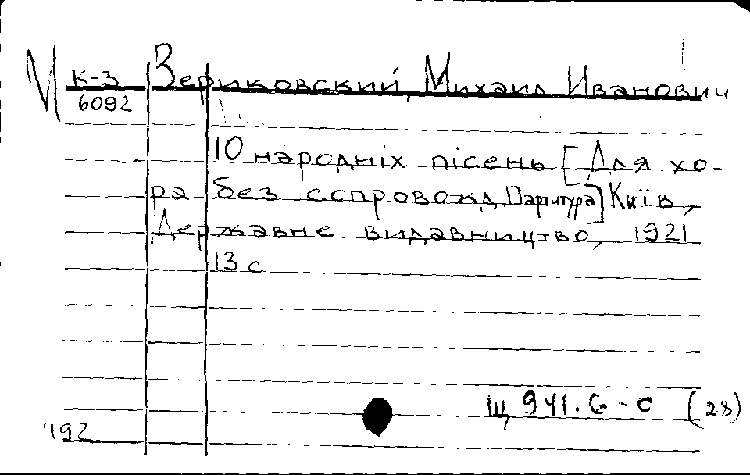 К-3 Вериковский, Михаил Иванович
6092
10 народніх пісень [Для хо-
ра без сопровожд. Партитура] Київ,
Державне видавництво, 1921
13 с
Щ 941.6-0 (28)
192